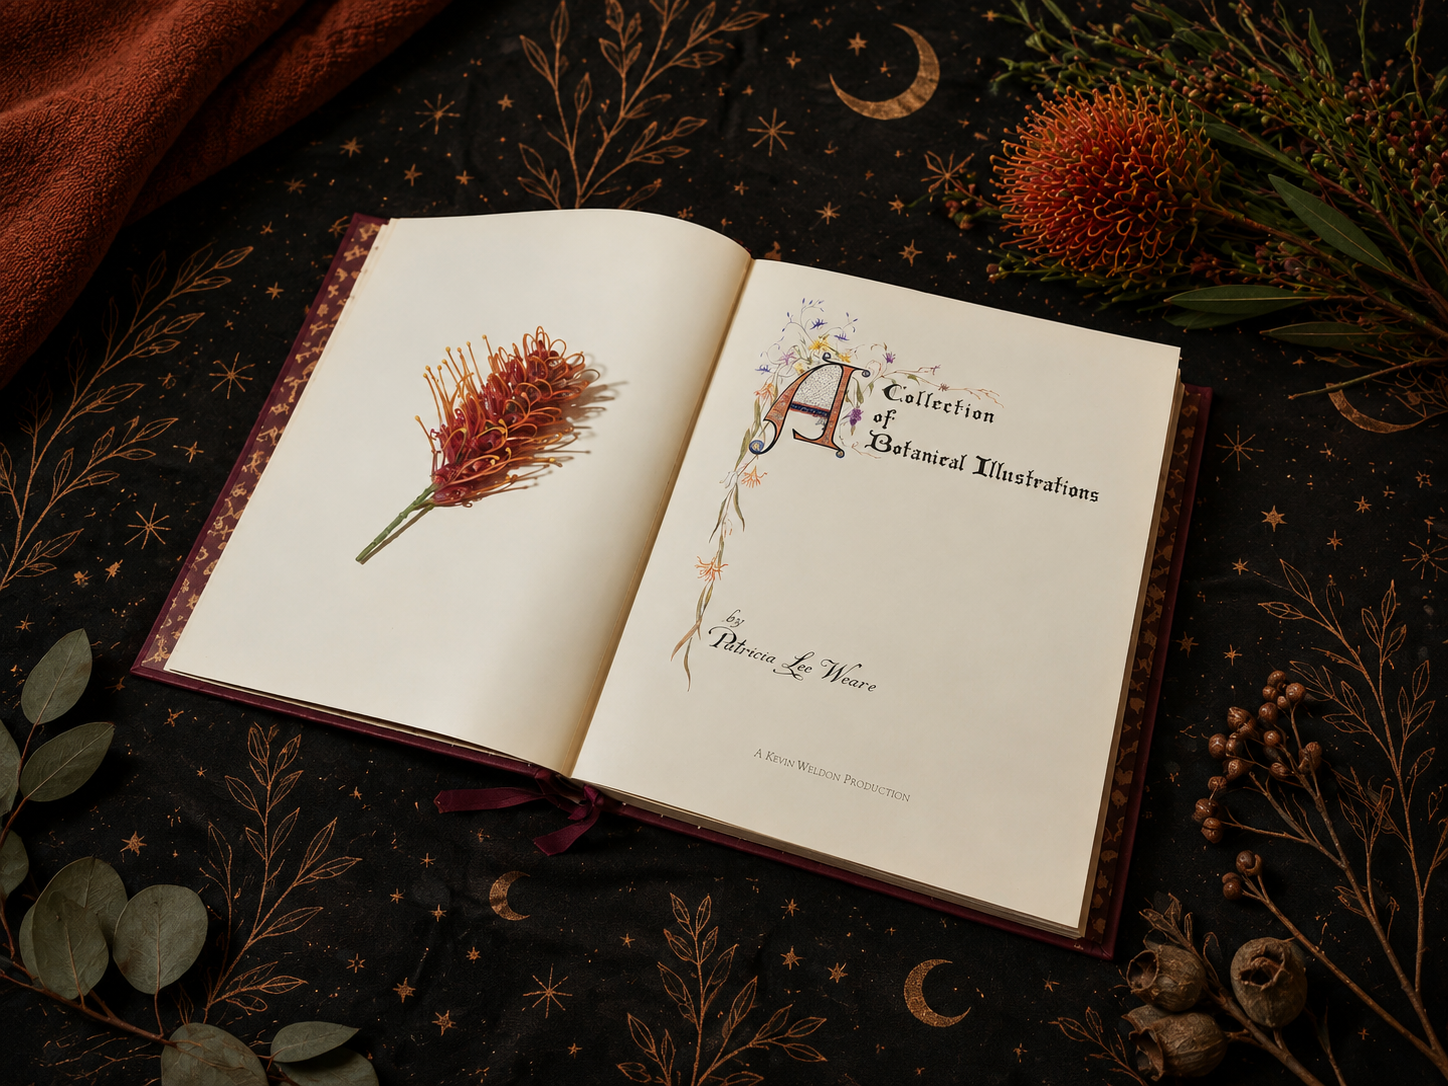 A Collection
of
Botanical Illustrations
by
Patricia Lee Weare
A Kevin Weldon Production